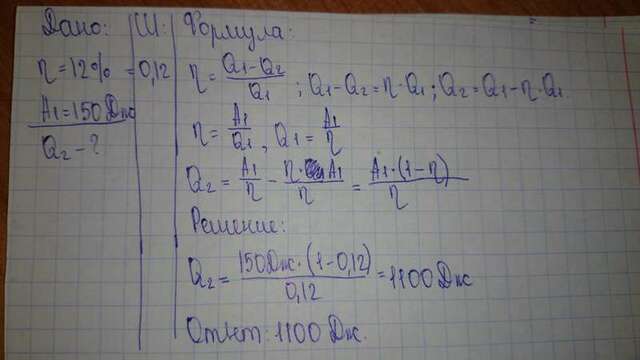 Дано: Ш: Формула:
η = 12% = 0,12
A₁ = 150 Дж
Q₂ - ?
η = (Q₁ - Q₂)/Q₁ ; Q₁ - Q₂ = η · Q₁ ; Q₂ = Q₁ - η · Q₁.
η = A₁/Q₁ , Q₁ = A₁/η
Q₂ = A₁/η - η · A₁/η = A₁ · (1 - η)/η
Решение:
Q₂ = 150 Дж · (1 - 0,12)/0,12 = 1100 Дж
Ответ: 1100 Дж.